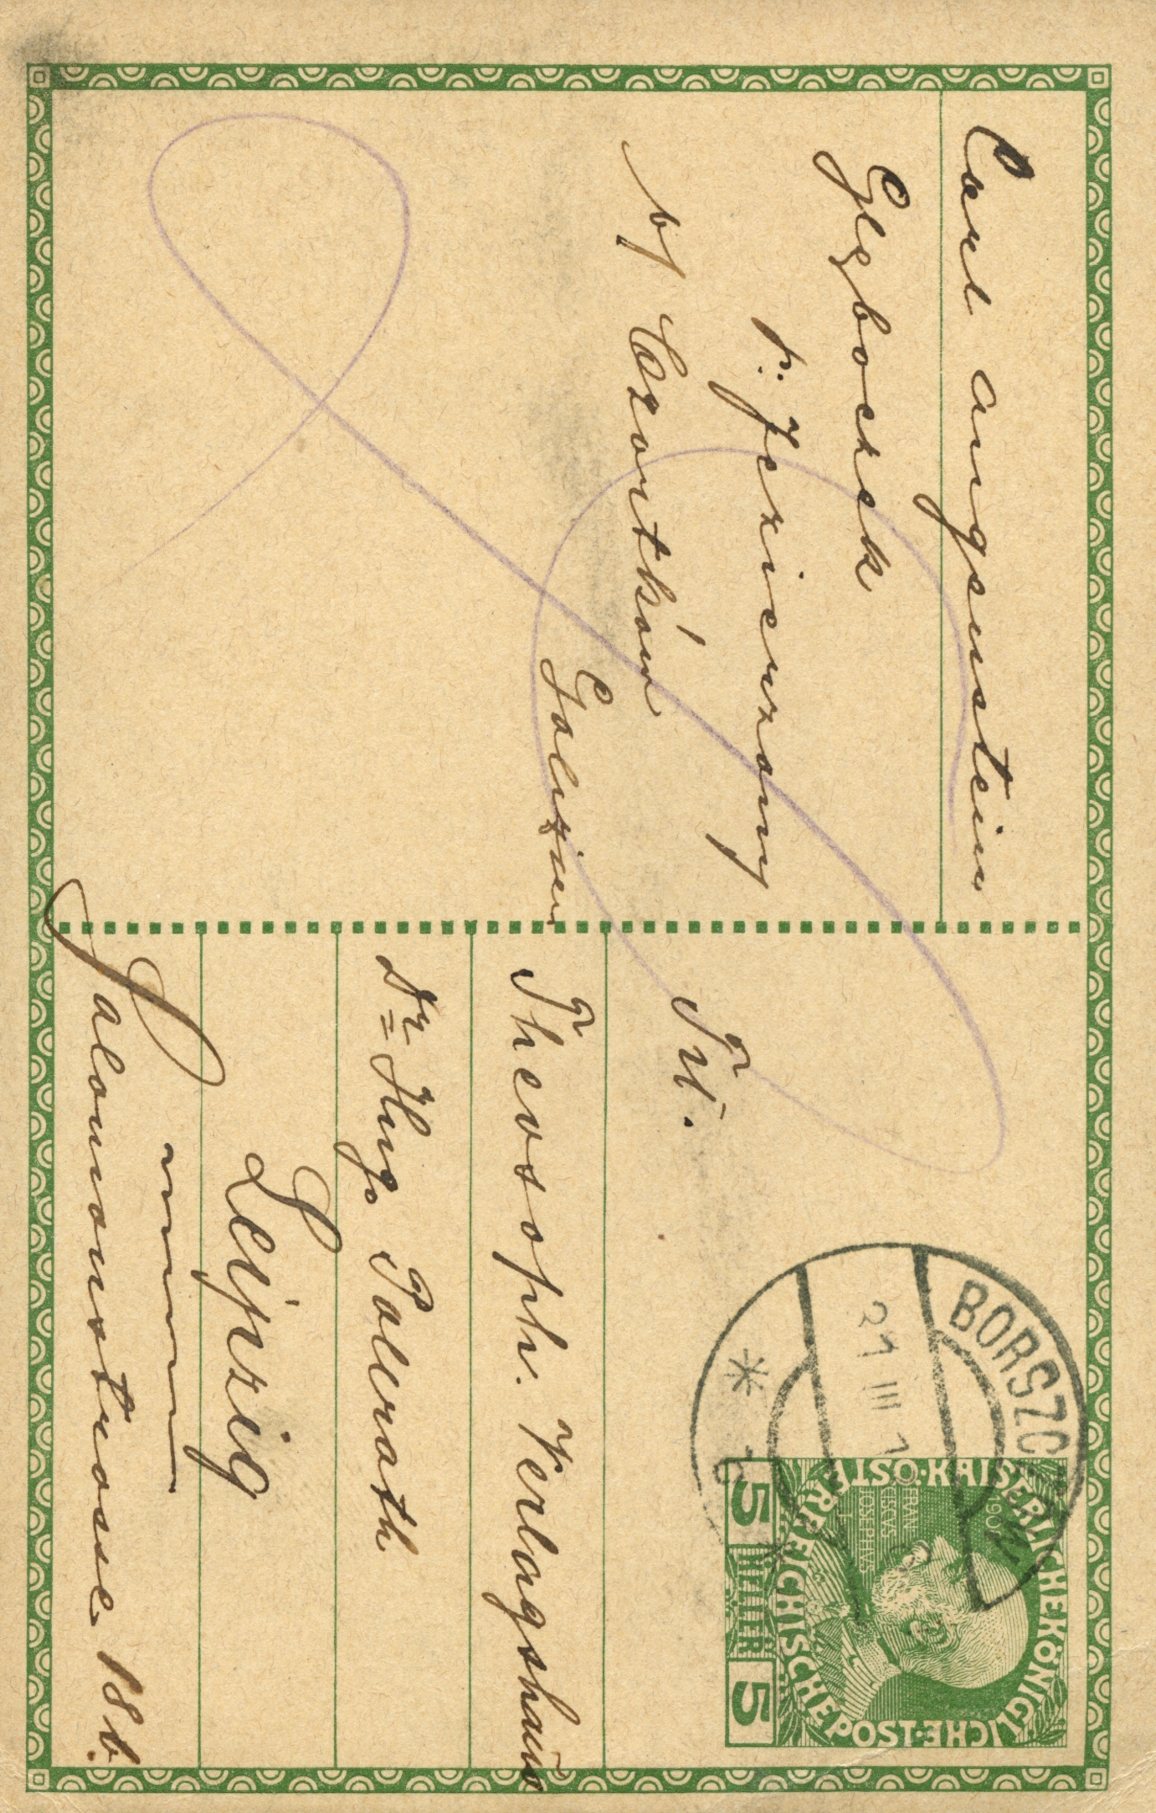 Carl Angenstein
Glęboczek
p. Jezierzany
b/ Czortków
Galizien
Tit.
Theosoph. Verlagshaus
Dr= Hugo Vollrath
Leipzig
Salomonstrasse 18b.
BORSZCZ
21 III 1
KAISERLICHE KÖNIGLICHE
ÖSTERREICHISCHE POST
FRAN
CISCVS
IOSEPHVS
5 HELLER 5